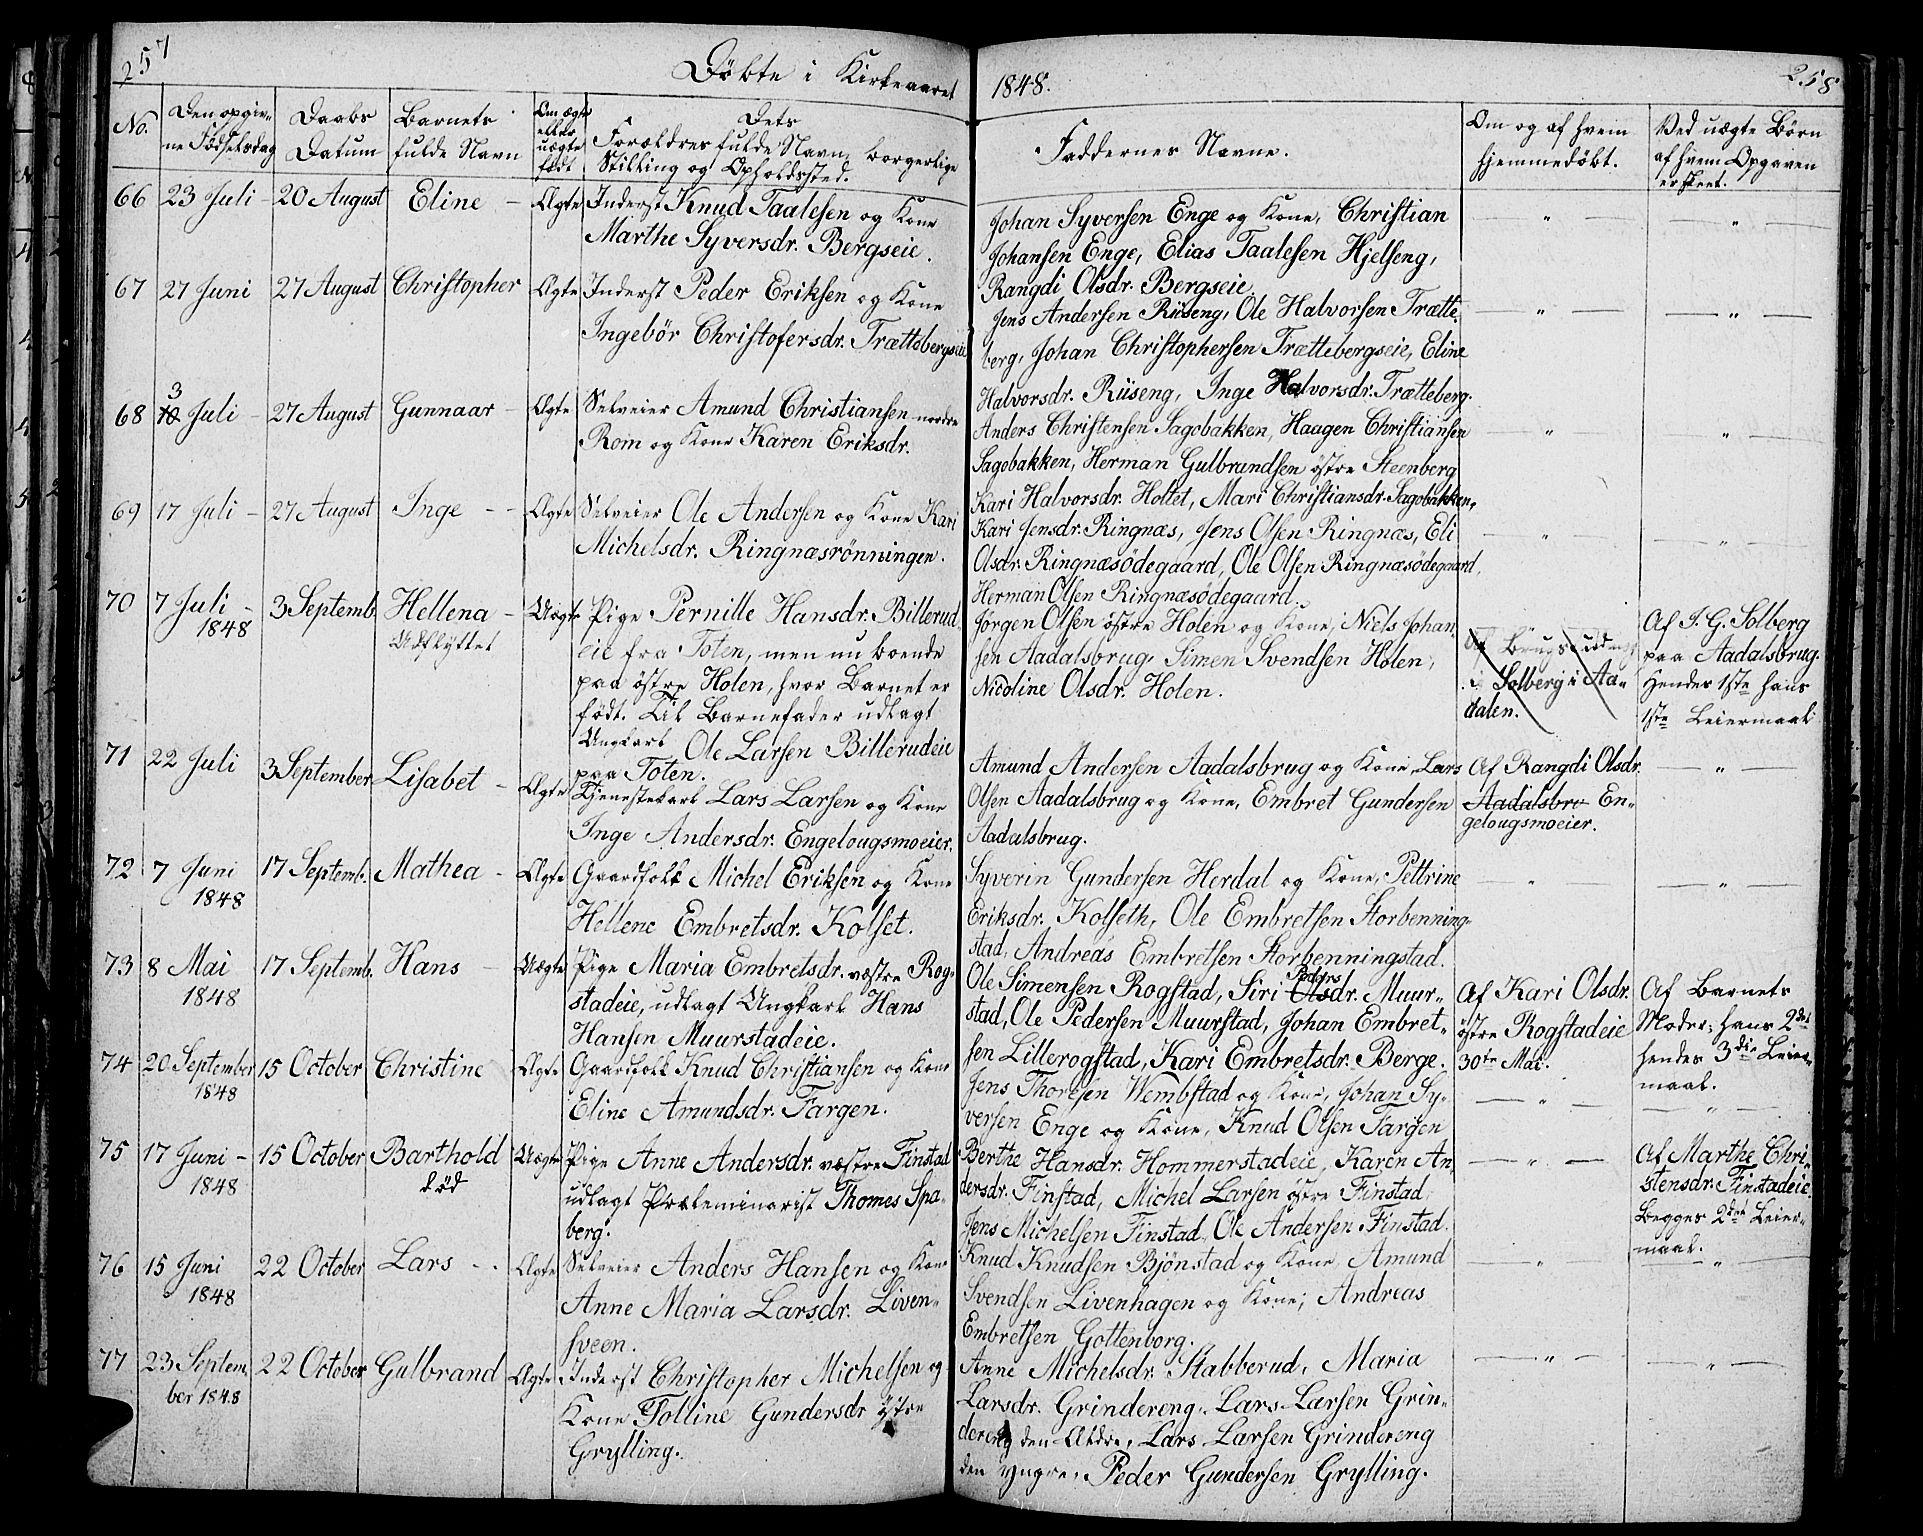 257
Döbte i Kirkeaaret
1848.
258
No.
Den opgiv-
ne Födselsdag
Daabs
Datum
Barnets
fulde Navn
Om ægte
eller
uægte
födt
Dets
Forældres fulde Navn, borgerlige
Stilling og Opholdssted.
Faddernes Navne.
Om og af hvem
hjemmedöbt.
Ved uægte Börn
af hvem Opgaven
er skeet.
66 23 Juli - 20 August Eline - Ægte Inderst Knud Taalesen og Kone
Marthe Syversdr. Bergseie.
Johan Syversen Enge og Kone, Christian
Johansen Enge, Elias Taalesen Hjelseng,
Rangdi Olsdr. Bergseie
67 27 Juni 27 August Christopher Ægte Inderst Peder Eriksen og Kone
Ingebör Christofersdr. Trættebergseie
Jens Andersen Riiseng, Ole Halvorsen Trætte-
berg, Johan Christophersen Trættebergseie, Eline
Halvorsdr. Riiseng, Inge Halvorsdr. Trætteberg.
68 3 10 Juli - 27 August Gunnaar - Ægte Selveier Amund Christiansen nordre
Rom og Kone Karen Eriksdr.
Anders Christensen Sagobakken, Haagen Christiansen
Sagobakken, Herman Gulbrandsen östre Steenberg
Kari Halvorsdr. Holtet, Mari Christiansdr. Sagobakken.
69 17 Juli - 27 August Inge - - Ægte Selveier Ole Andersen og Kone Kari
Michelsdr. Ringnæsrönningen.
Kari Jensdr. Ringnæs, Jens Olsen Ringnæs, Eli
Olsdr. Ringnæsödegaard, Ole Olsen Ringnæsödegaard,
Herman Olsen Ringnæsödegaard
70 7 Juli - 1848 3 Septemb. Hellena - Uægte Pige Pernille Hansdr. Billerud-
Udflyttet
eie fra Toten, men nu boende
paa östre Holen, hvor Barnet er
födt. Til Barnefader udlagt
Ungkarl Ole Larsen Billerudeie
paa Toten.
Jörgen Olsen östre Holen og Kone, Niels Johan-
sen Aadalsbrug, Simen Svendsen Holen,
Nicoline Olsdr. Holen.
Solberg i Aa-
dalen.
Af I. G. Solberg
paa Aadalsbrug.
Hendes 1ste hans
1ste Leiermaal
71 22 Juli 3 September Lisabet - Ægte Tjenestekarl Lars Larsen og Kone
Inge Andersdr. Engelougsmoeier.
Amund Andersen Aadalsbrug og Kone, Lars
Olsen Aadalsbrug og Kone, Embret Gundersen
Aadalsbrug.
Af Rangdi Olsdr.
Aadalsbro En-
gelougsmoeier.
72 7 Juni 1848 17 Septemb. Mathea - Ægte Gaardfolk Michel Eriksen og Kone
Hellene Embretsdr. Kolset.
Syverin Gundersen Herdal og Kone, Pettrine
Eriksdr. Kolseth, Ole Embretsen Storbenning-
stad, Andreas Embretsen Storbenningstad.
73 8 Mai 1848 17 Septemb. Hans - Uægte Pige Maria Embretsdr. væstre Rog-
stadeie, udlagt Ungkarl Hans
Hansen Muurstadeie.
Ole Simensen Rogstad, Siri Olsdr. Peders Muur-
stad, Ole Pedersen Muurstad, Johan Embret-
sen Lillerogstad, Kari Embretsdr. Berge.
Af Kari Olsdr.
östre Rogstadeie
30te Mai.
Af Barnets
Moder; hans 2det
hendes 3die Leier-
maal.
74 20 September 1848 15 October Christine Ægte Gaardfolk Knud Christiansen og Kone
Eline Amundsdr. Fargen.
Jens Thoresen Wembstad og Kone, Johan Sy-
versen Enge og Kone, Knud Olsen Fargen
75 17 Juni - 1848 15 October Barthold Uægte Pige Anne Andersdr. væstre Finstad
död
udlagt Præleminarist Thomes Spa-
berg.
Berthe Hansdr. Hommerstadeie, Karen An-
dersdr. Finstad, Michel Larsen östre Finstad,
Jens Michelsen Finstad, Ole Andersen Finstad.
Af Marthe Chri-
stensdr. Finstadeie.
Begges 2det Leier-
maal.
76 15 Juni 1848 22 October Lars - - Ægte Selveier Anders Hansen og Kone
Anne Maria Larsdr. Liven-
sveen.
Knud Knudsen Bjönstad og Kone, Amund
Svendsen Livenhagen og Kone; Andreas
Embretsen Gottenborg.
77 23 Septem-
ber 1848 22 October Gulbrand Ægte Inderst Christopher Michelsen og
Kone Tolline Gundersdr östre
Grylling.
Anne Michelsdr. Stabberud, Maria
Larsdr. Grindereng, Lars Larsen Grin-
dereng den Ældre, Lars Larsen Grindereng
den yngre, Peder Gundersen Grylling.